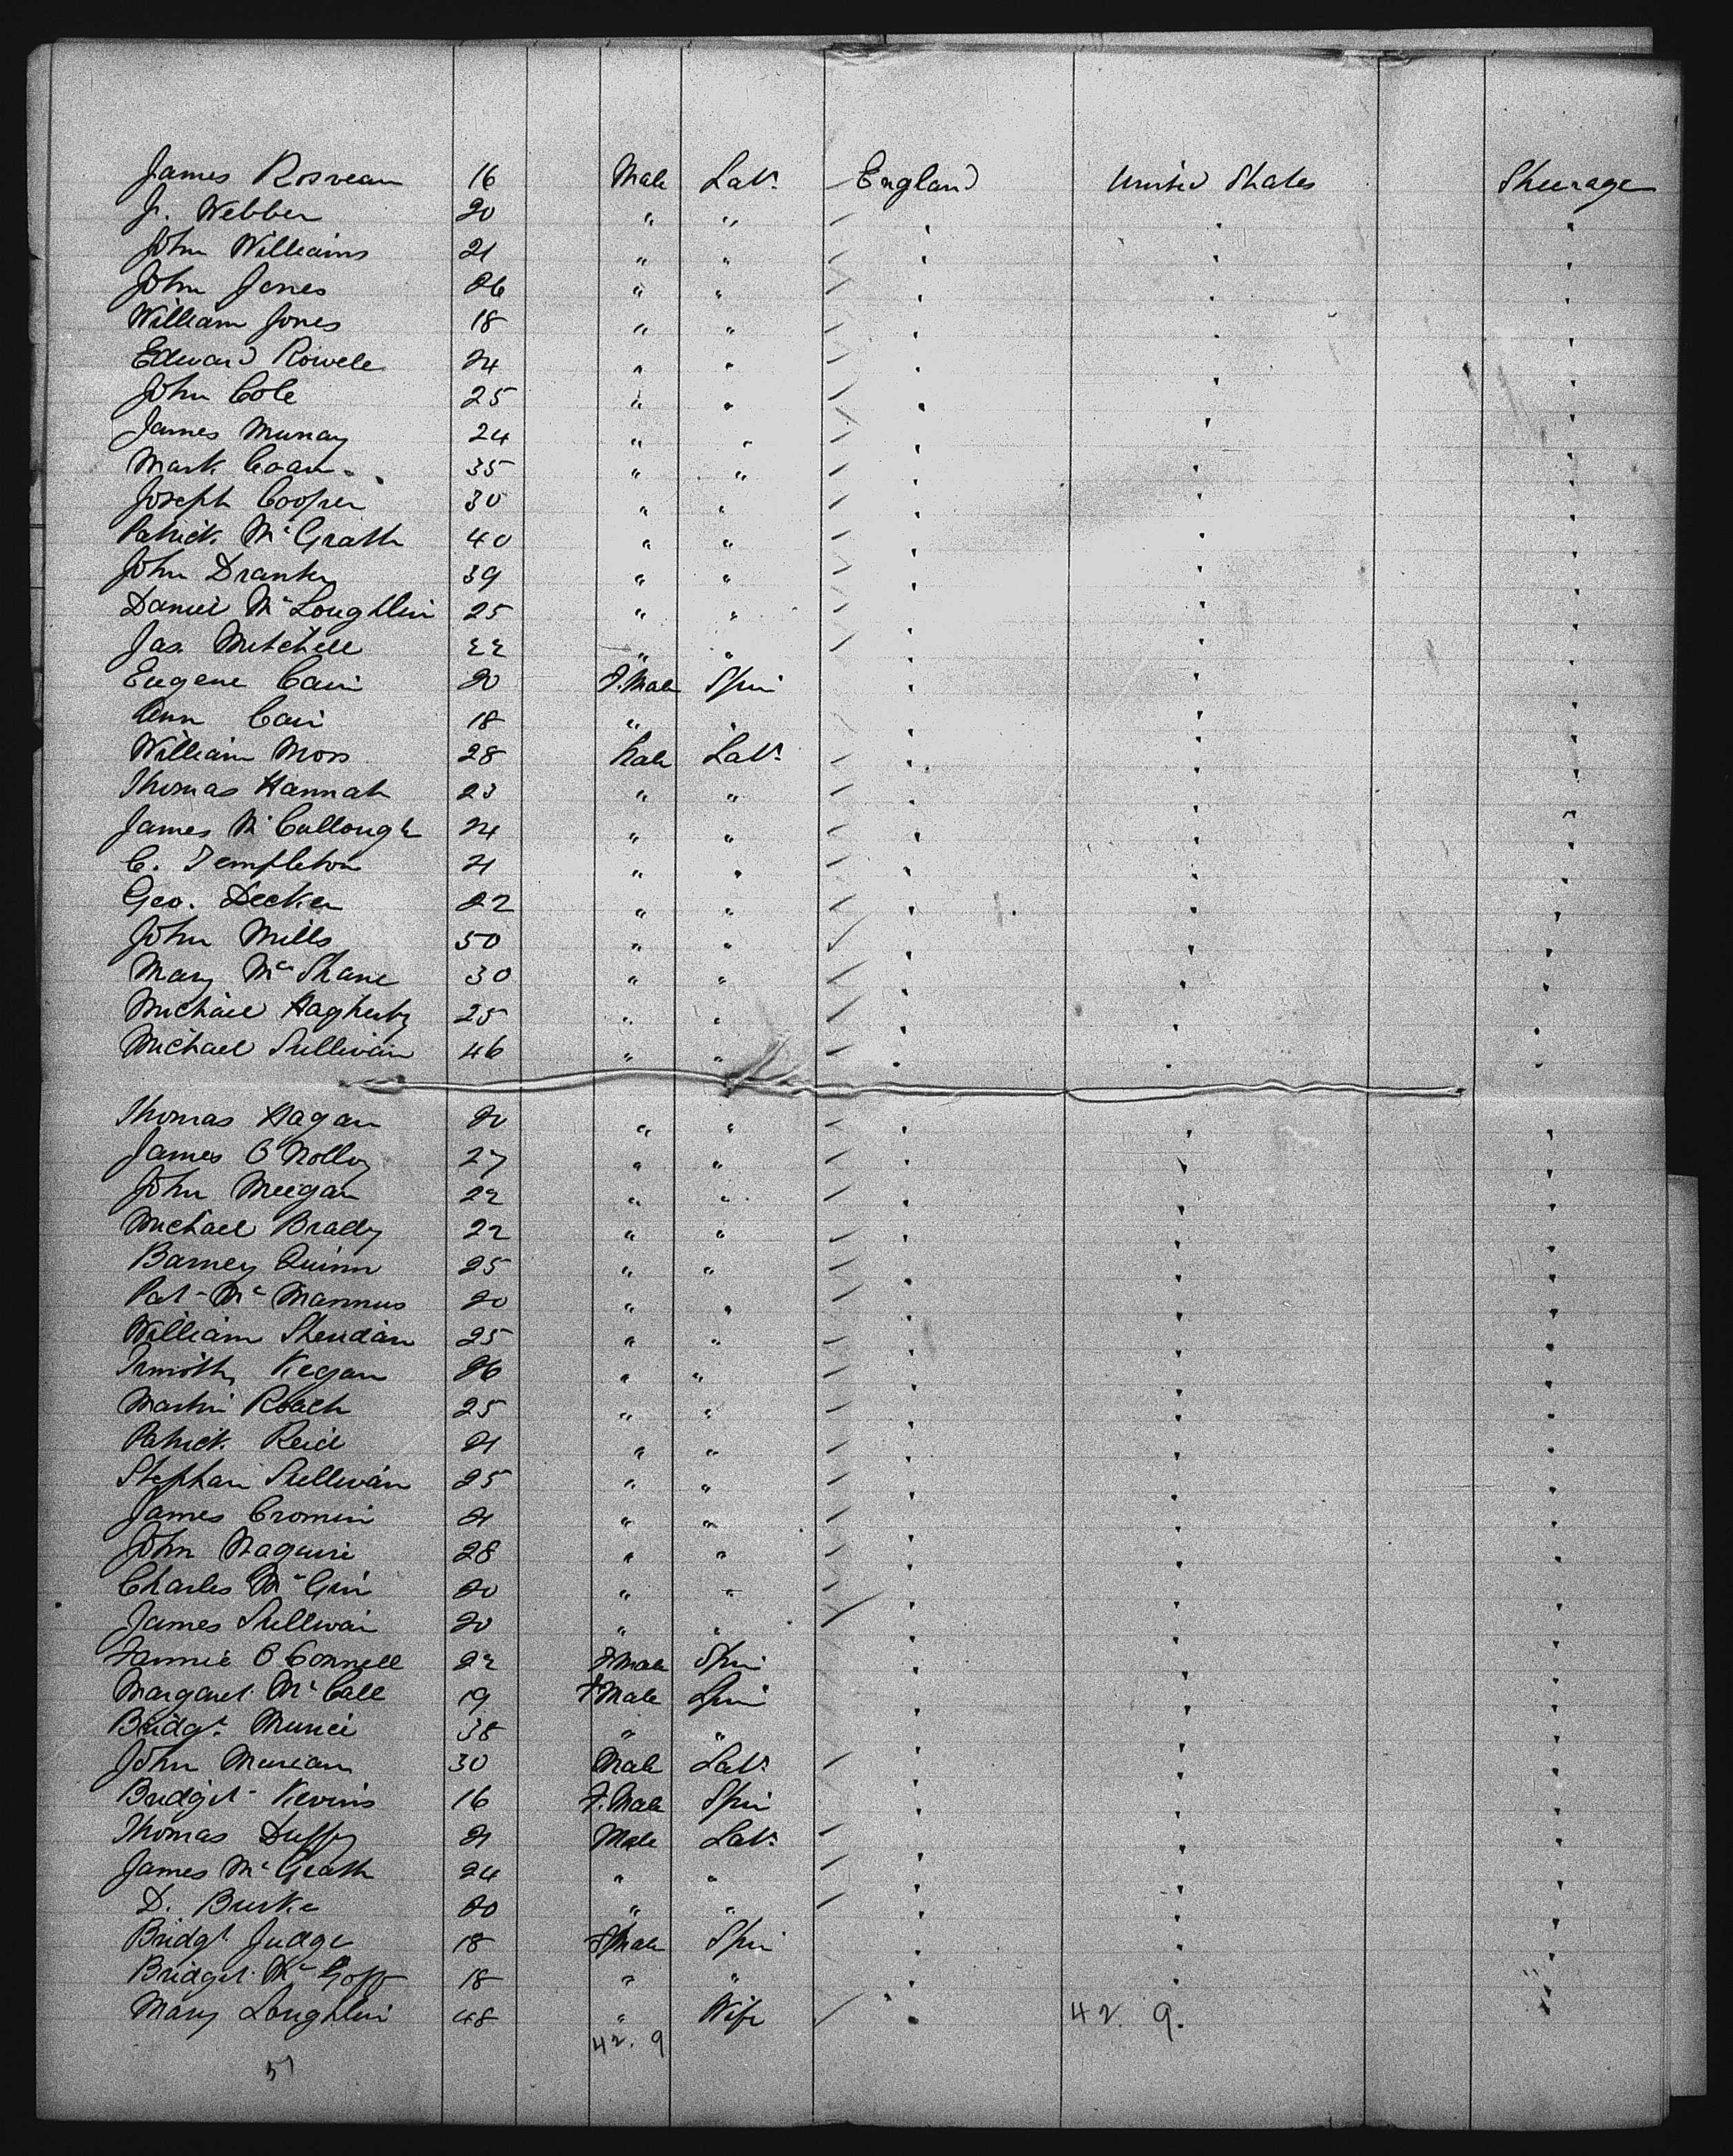 James Rosvean 16 Male Labr England United States Steerage
J. Webber 20 " " " " "
John Williams 21 " " " " "
John Jones 26 " " " " "
William Jones 18 " " " " "
Edward Rowele 24 " " " " "
John Cole 25 " " " " "
James Murray 24 " " " " "
Mark Coan 35 " " " " "
Joseph Cooper 30 " " " " "
Patrick McGrath 40 " " " " "
John 39 " " " " "
Daniel McLoughlin 25 " " " " "
Jas. Mitchell 22 " " " " "
Eugene Cain 20 F.Male Spin " " "
Ann Cain 18 " " " " "
William Moss 28 Male Labr " " "
Thomas Hannah 23 " " " " "
James McCullough 24 " " " " "
C. Templeton 21 " " " " "
Geo. Decker 22 " " " " "
John Mills 50 " " " " "
Mary McShane 30 " " " " "
Michael Hagherty 25 " " " " "
Michael Sullivan 46 " " " " "
Thomas Hagan 20 " " " " "
James O'Nolly 27 " " " " "
John Meegan 22 " " " " "
Michael Brady 22 " " " " "
Barney Quinn 25 " " " " "
Pat McMannus 20 " " " " "
William Sheridan 25 " " " " "
Timothy Kegan 26 " " " " "
Martin Roach 25 " " " " "
Patrick Reid 21 " " " " "
Stephan Sullivan 25 " " " " "
James Cromin 21 " " " " "
John Maguire 28 " " " " "
Charles McGin 20 " " " " "
James Sullivan 20 " " " " "
Fannie O'Connell 22 F.Male Spin " " "
Margaret McCall 19 F.Male Spin " " "
Bridgt. 38 " " " " "
John 30 Male Labr " " "
Bridget Kevins 16 F.Male Spin " " "
Thomas Duffy 21 Male Labr " " "
James McGrath 24 " " " " "
D. Burke 20 " " " " "
Bridgt Judge 18 F.Male Spin " " "
Bridget McGoff 18 " " " " "
Mary Loughlin 48 " Wife " 42. 9. "
42. 9
51